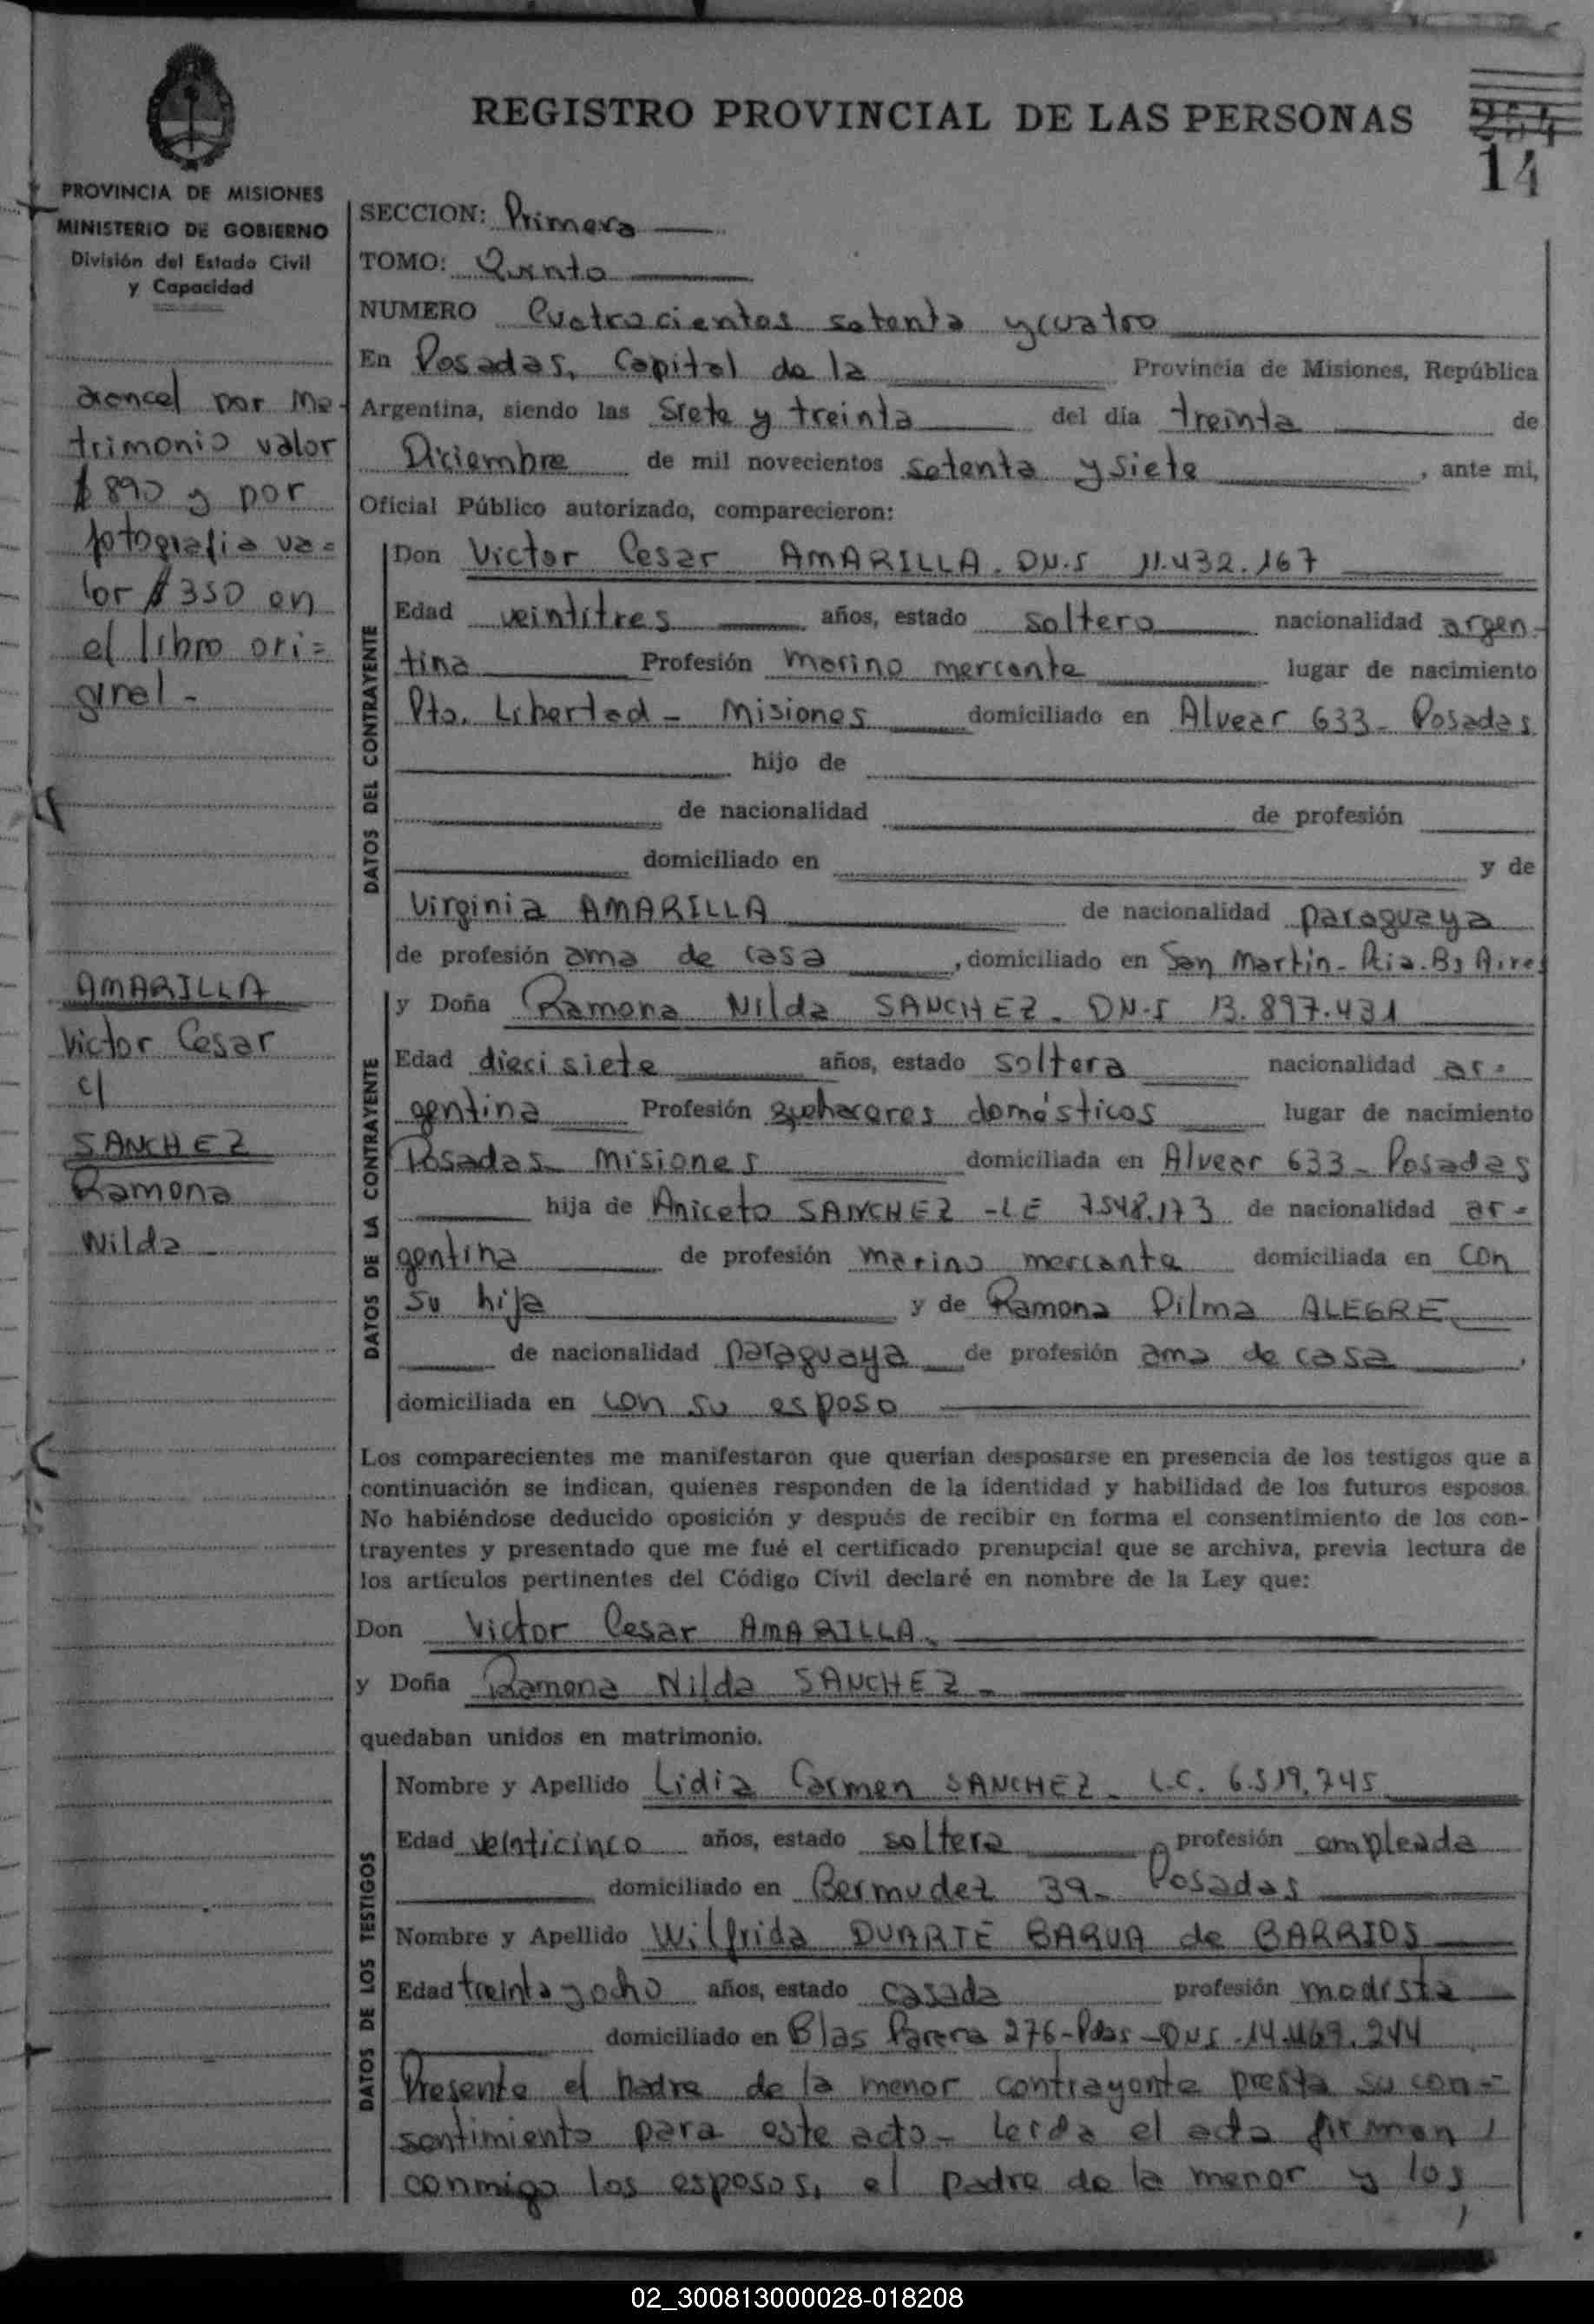 REGISTRO PROVINCIAL DE LAS PERSONAS
14
PROVINCIA DE MISIONES
MINISTERIO DE GOBIERNO
División del Estado Civil
y Capacidad
arancel por ma-
trimonio valor
$ 890 y por
fotografia va=
lor $ 350 en
el libro ori=
ginal -
AMARILLA
Victor Cesar
c/
SANCHEZ
Ramona
Nilda
SECCION: Primera
TOMO: Quinto
NUMERO Cuatrocientos setenta y cuatro
En Posadas, Capital de la Provincia de Misiones, República
Argentina, siendo las Siete y treinta del día treinta de
Diciembre de mil novecientos setenta y siete, ante mi,
Oficial Público autorizado, comparecieron:
DATOS DEL CONTRAYENTE
Don Victor Cesar AMARILLA. DN.I 11.432.167
Edad veintitres años, estado soltero nacionalidad argen-
tina Profesión marino mercante lugar de nacimiento
Pto. Libertad - Misiones domiciliado en Alvear 633 - Posadas
hijo de
de nacionalidad de profesión
domiciliado en y de
Virginia AMARILLA de nacionalidad paraguaya
de profesión ama de casa, domiciliado en San Martin - Pcia. Bs Aires
DATOS DE LA CONTRAYENTE
y Doña Ramona Nilda SANCHEZ - DN.I 13.897.431
Edad dieci siete años, estado soltera nacionalidad ar=
gentina Profesión quehaceres domésticos lugar de nacimiento
Posadas - Misiones domiciliada en Alvear 633 - Posadas
hija de Aniceto SANCHEZ - LE 7.548.173 de nacionalidad ar=
gentina de profesión marino mercante domiciliada en con
su hija y de Ramona Dilma ALEGRE
de nacionalidad paraguaya de profesión ama de casa,
domiciliada en con su esposo
Los comparecientes me manifestaron que querían desposarse en presencia de los testigos que a
continuación se indican, quienes responden de la identidad y habilidad de los futuros esposos.
No habiéndose deducido oposición y después de recibir en forma el consentimiento de los con-
trayentes y presentado que me fué el certificado prenupcial que se archiva, previa lectura de
los artículos pertinentes del Código Civil declaré en nombre de la Ley que:
Don Victor Cesar AMARILLA.
y Doña Ramona Nilda SANCHEZ -
quedaban unidos en matrimonio.
DATOS DE LOS TESTIGOS
Nombre y Apellido Lidia Carmen SANCHEZ - L.C. 6.519.745
Edad veinticinco años, estado soltera profesión empleada
domiciliado en Bermudez 39 - Posadas
Nombre y Apellido Wilfrida DUARTE BARUA de BARRIOS
Edad treinta y ocho años, estado casada profesión modista
domiciliado en Blas Parera 276 - Pdas - DNI - 14.469.244
Presente el padre de la menor contrayente presta su con=
sentimiento para este acto - leida el acta firman
conmigo los esposos, el padre de la menor y los
02_300813000028-018208